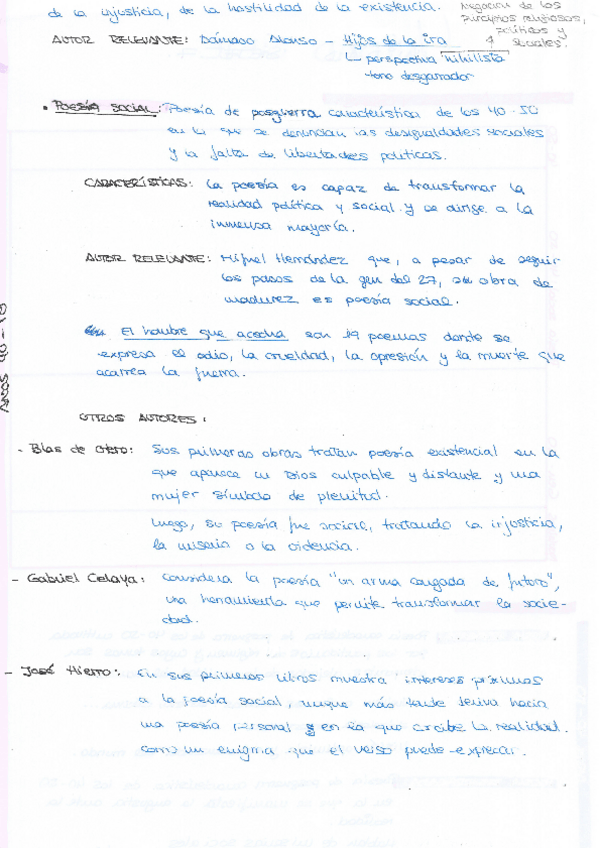 de la injusticia, de la hostilidad de la existencia.
Negación de los
principios religiosos,
políticos y
sociales.
AUTOR RELEVANTE: Dámaso Alonso - Hijos de la ira
↳ perspectiva "nihilista"
tono desgarrador
• POESÍA SOCIAL: Poesía de posguerra característica de los 40-50
en la que se denuncian las desigualdades sociales
y la falta de libertades políticas.
CARACTERÍSTICAS: La poesía es capaz de transformar la
realidad política y social y se dirige a la
inmensa mayoría.
AUTOR RELEVANTE: Miguel Hernández que, a pesar de seguir
los pasos de la gen del 27, su obra de
madurez es poesía social.
El hombre que acecha son 19 poemas donde se
expresa el odio, la crueldad, la opresión y la muerte que
acarrea la guerra.
OTROS AUTORES:
- Blas de Otero: Sus primeras obras tratan poesía existencial en la
que aparece un Dios culpable y distante y una
mujer símbolo de plenitud.
Luego, su poesía fue social, tratando la injusticia,
la miseria o la violencia.
- Gabriel Celaya: Considera la poesía "un arma cargada de futuro",
una herramienta que permite transformar la socie-
dad.
- José Hierro: En sus primeros libros muestra intereses próximos
a la poesía social, aunque más tarde deriva hacia
una poesía personal en la que concibe la realidad
como un enigma que el verso puede expresar.